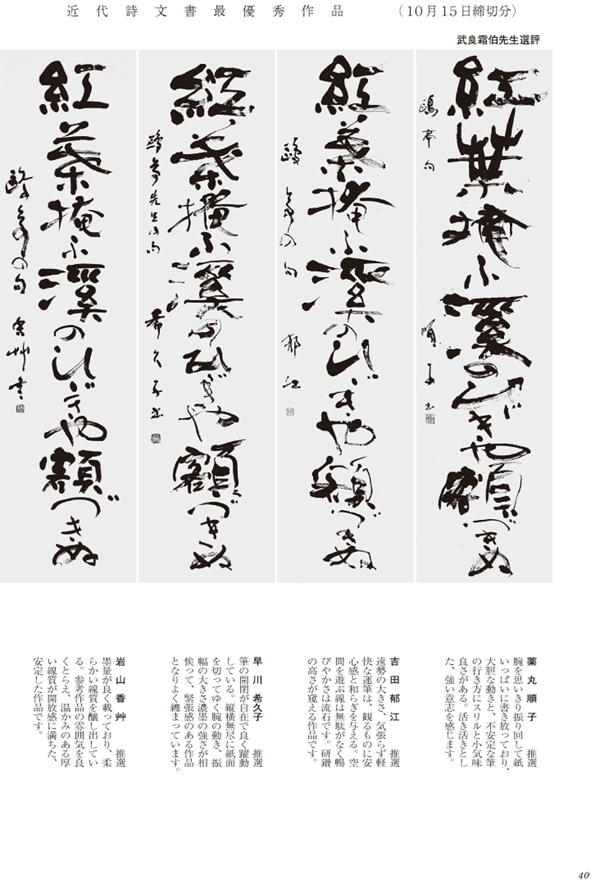 近代詩文書最優秀作品 （10月15日締切分）
武良霜伯先生選評
紅葉掩ふ渓のひゞきや額づきぬ
鴎亭句 順子書
紅葉掩ふ渓のひゞきや額づきぬ
鴎亭の句 郁江
紅葉掩ふ渓のひゞきや額づきぬ
鴎亭先生の句 希久子書
紅葉掩ふ渓のひゞきや額づきぬ
鴎亭の句 香艸書
薬丸順子 推選
腕を思いきり振り回して紙
いっぱいに書き放っており、
大胆な動きと、不安定な筆
の行き方にスリルと小気味
良さがある。活き活きとし
た、強い意志を感じます。
吉田郁江 推選
遠勢の大きさ、気張らず軽
快な運筆は、観るものに安
心感と和らぎを与える。空
間を遊ぶ線は無駄がなく暢
びやかさは流石です。研鑽
の高さが窺える作品です。
早川希久子 推選
筆の開閉が自在で良く躍動
している。縦横無尽に紙面
を切ってゆく腕の動き、振
幅の大きさ濃墨の強さが相
俟って、緊張感のある作品
となりよく纏まっています。
岩山香艸 推選
墨量が良く載っており、柔
らかい線質を醸し出してい
る。参考作品の雰囲気を良
くとらえ、温かみのある厚
い線質が開放感に満ちた、
安定した作品です。
40